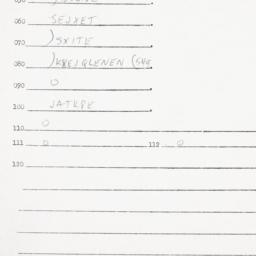 060 SEJXET
070 )SXITE
080 )KREJQLENEN (SHE
090 0
100 JATKPE
110 0
111 0 112 0
120